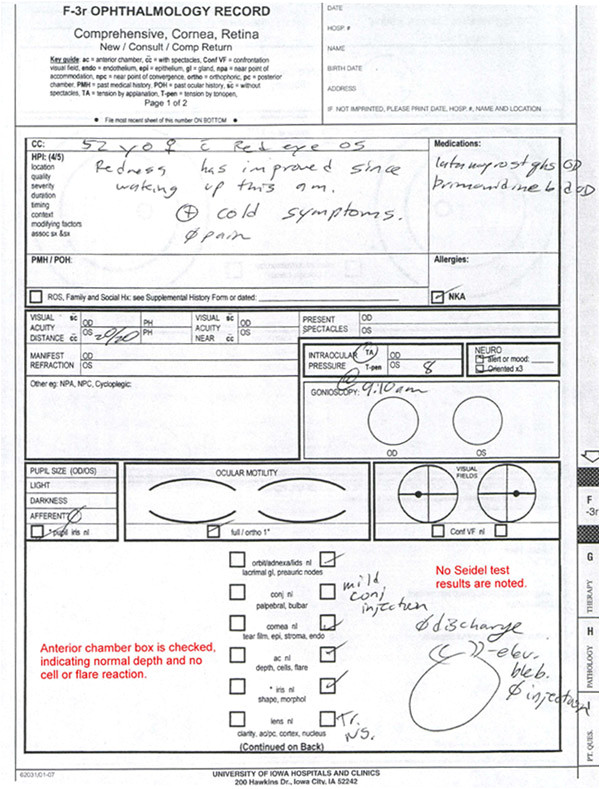 F-3r OPHTHALMOLOGY RECORD
Comprehensive, Cornea, Retina
New / Consult / Comp Return
Key guide: ac = anterior chamber, c̄c̄ = with spectacles, Conf VF = confrontation
visual field, endo = endothelium, epi = epithelium, gl = gland, npa = near point of
accommodation, npc = near point of convergence, ortho = orthophoric, pc = posterior
chamber, PMH = past medical history, POH = past ocular history, s̄c̄ = without
spectacles, TA = tension by applanation, T-pen = tension by tonopen,
Page 1 of 2
● File most recent sheet of this number ON BOTTOM ●
DATE
HOSP. #
NAME
BIRTH DATE
ADDRESS
IF NOT IMPRINTED, PLEASE PRINT DATE, HOSP. #, NAME AND LOCATION
CC: 52 yo ♀ c̄ Red eye OS
HPI: (4/5)
location
quality
severity
duration
timing
context
modifying factors
assoc sx &sx
Redness has improved since
waking up this am.
⊕ cold symptoms.
∅ pain
Medications:
qhs OD
bid OD
PMH / POH:
Allergies:
NKA
ROS, Family and Social Hx: see Supplemental History Form or dated:
VISUAL ACUITY DISTANCE sc cc OD PH
OS 20/20 PH
VISUAL ACUITY NEAR sc cc OD
OS
PRESENT SPECTACLES OD
OS
MANIFEST REFRACTION OD
OS
INTRAOCULAR PRESSURE TA T-pen OD
OS 8
NEURO
alert or mood:
Oriented x3
Other eg: NPA, NPC, Cycloplegic:
9:10am
GONIOSCOPY:
OD OS
PUPIL SIZE (OD/OS)
LIGHT
DARKNESS
AFFERENT
* pupil iris nl
OCULAR MOTILITY
full / ortho 1*
VISUAL FIELDS
Conf VF nl
orbit/adnexa/lids nl
lacrimal gl, preauric nodes
conj nl
palpebral, bulbar
mild
conj
injection
cornea nl
tear film, epi, stroma, endo
ac nl
depth, cells, flare
* iris nl
shape, morphol
lens nl
clarity, ac/pc, cortex, nucleus
Tr.
NS.
(Continued on Back)
Anterior chamber box is checked,
indicating normal depth and no
cell or flare reaction.
No Seidel test
results are noted.
∅ discharge
elev.
bleb.
∅ injection
F
-3r
G
THERAPY
H
PATHOLOGY
I
PT. QUES.
62031/01-07
UNIVERSITY OF IOWA HOSPITALS AND CLINICS
200 Hawkins Dr., Iowa City, IA 52242